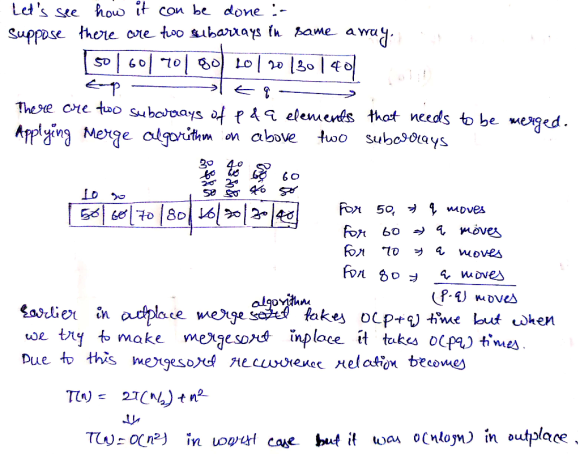 Let's see how it can be done :-
Suppose there are two subarrays in same array.
50 | 60 | 70 | 80 | 10 | 20 | 30 | 40
p q
There are two subarrays of p & q elements that needs to be merged.
Applying Merge algorithm on above two subarrays
30 40 50
60 60
20 30
10 20 50 50 40 50
50 | 60 | 70 | 80 | 10 | 20 | 30 | 40
For 50, → q moves
For 60 → q moves
For 70 → q moves
For 80 → q moves
(p.q) moves
algorithm
Earlier in outplace merge takes O(p+q) time but when
we try to make mergesort inplace it takes O(pq) times.
Due to this mergesord recurrence relation becomes
T(n) = 2T(n/2) + n²
⇓
T(n) = O(n²) in worst case but it was O(nlogn) in outplace.